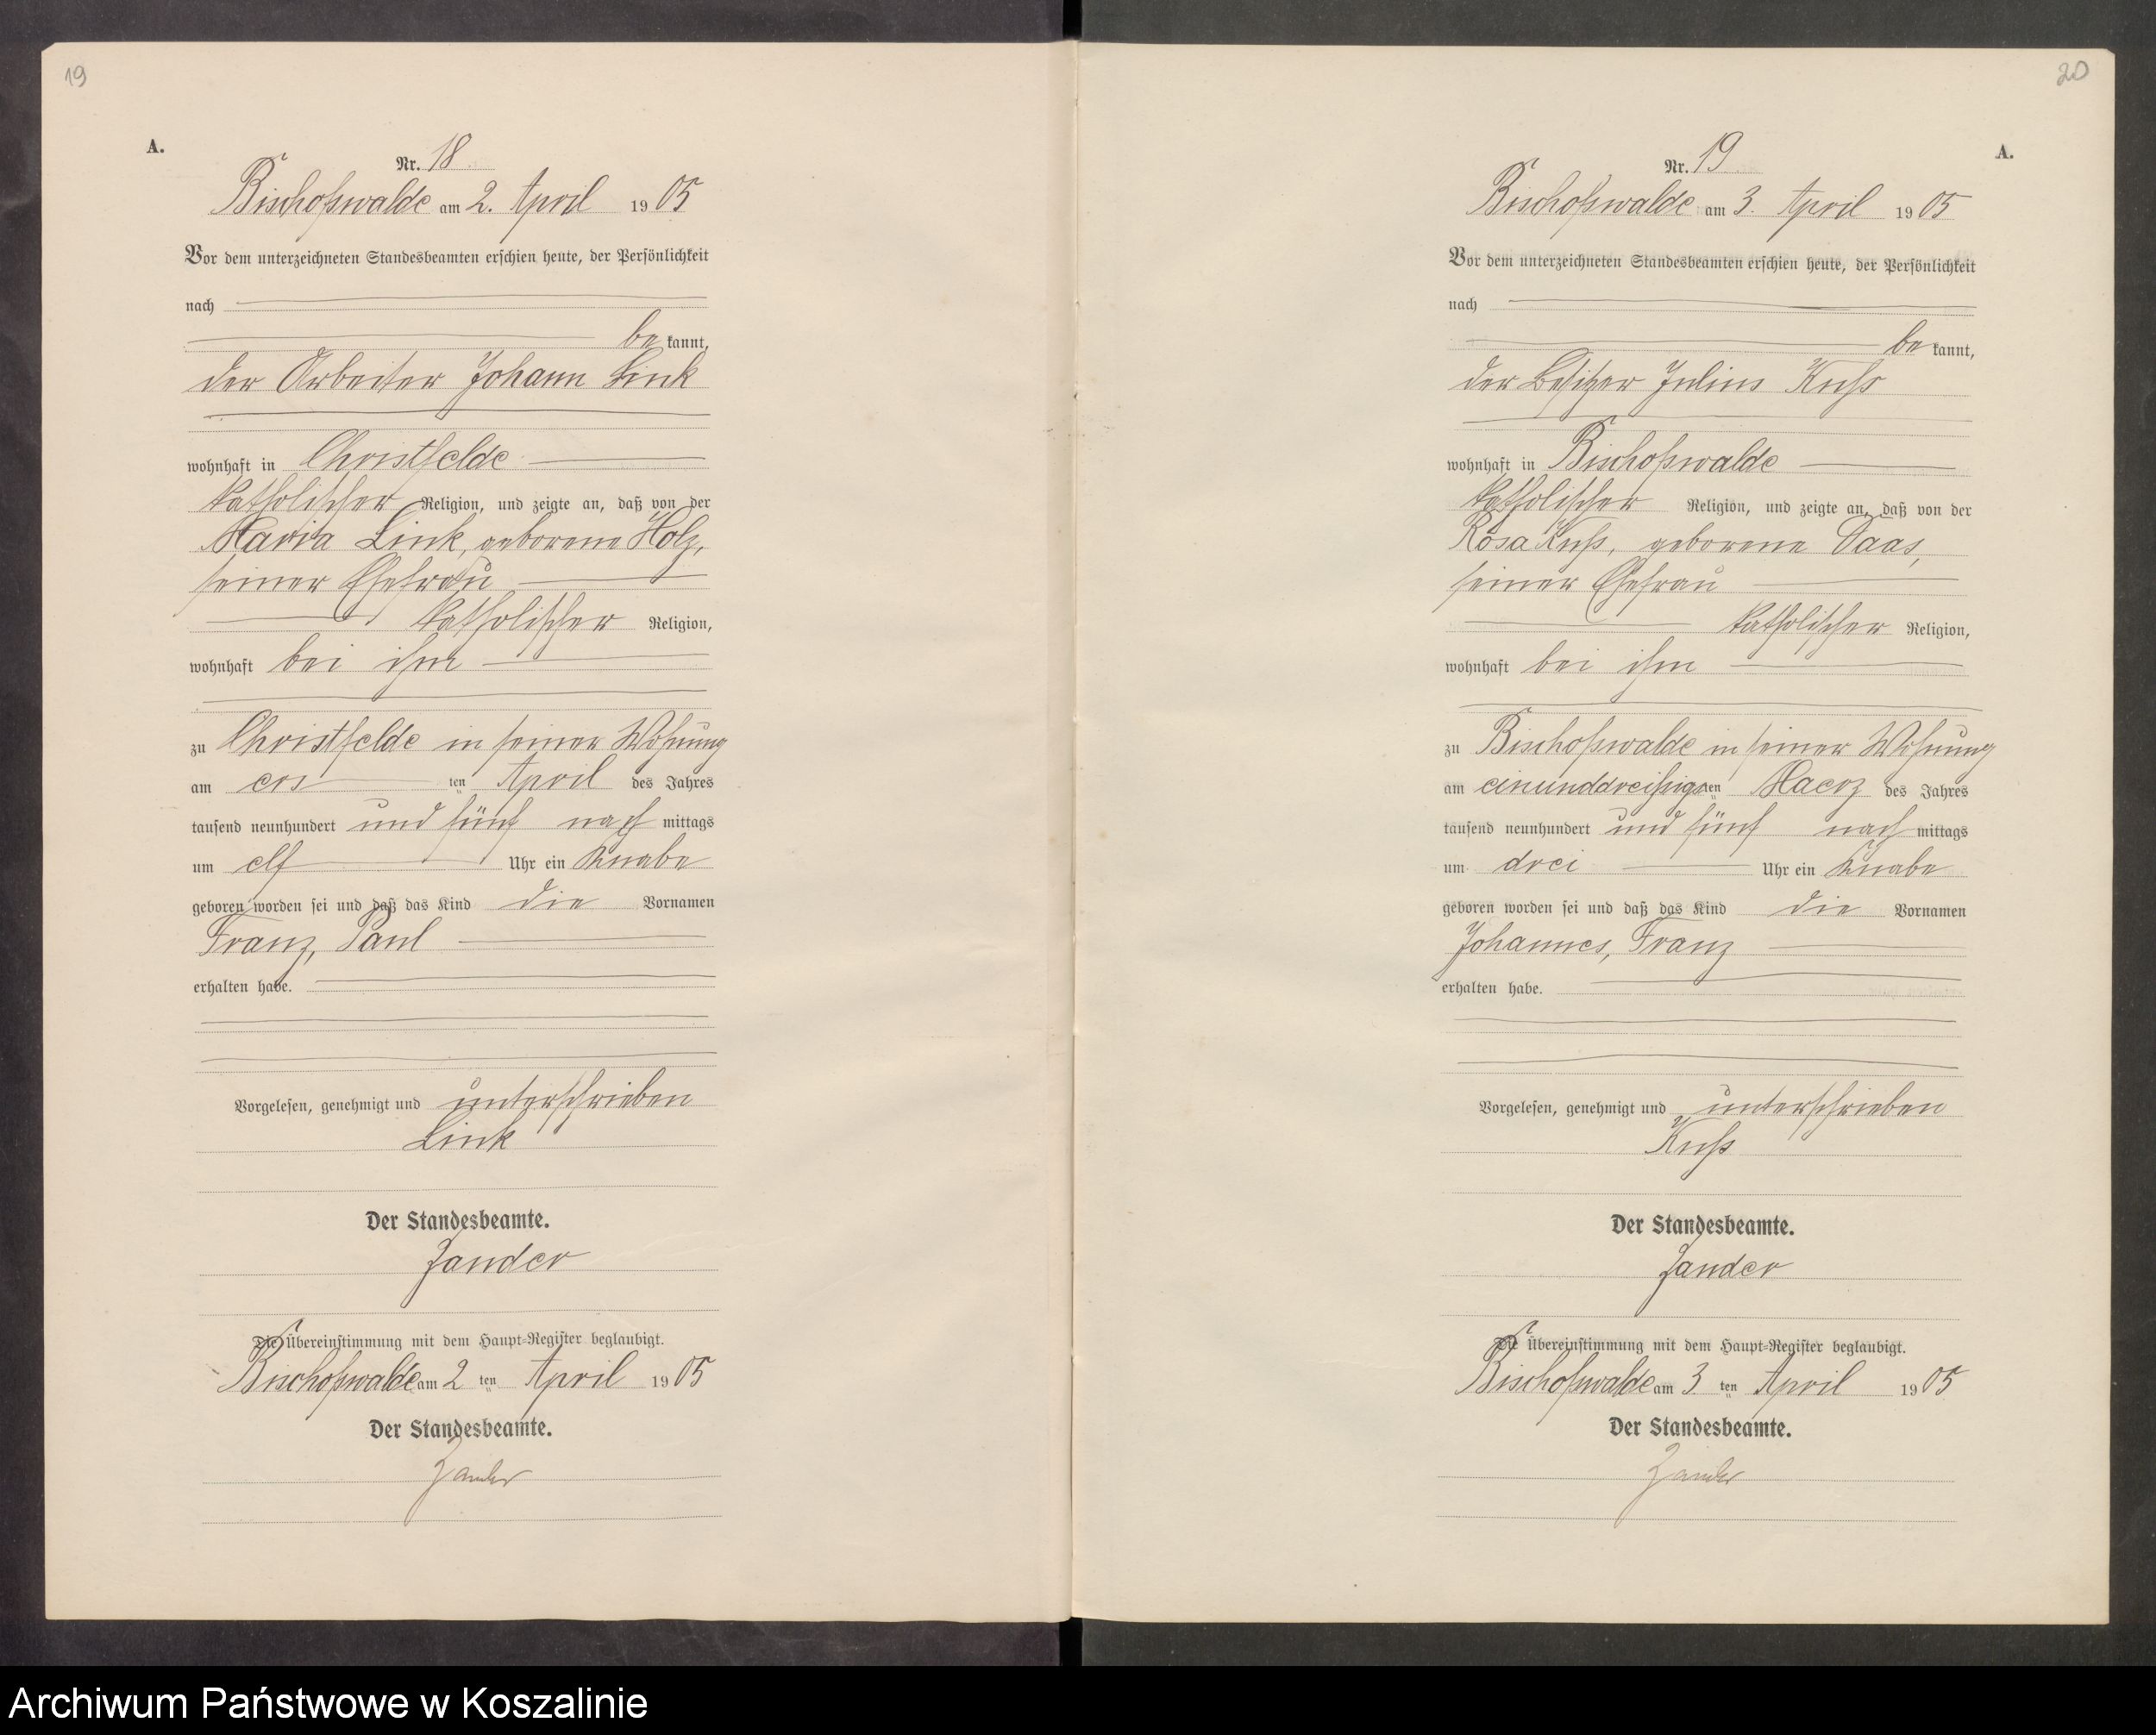 19
A.
Nr. 18
Bischofswalde am 2. April 1905
Vor dem unterzeichneten Standesbeamten erschien heute, der Persönlichkeit
nach
be kannt,
der Arbeiter Johann Link
wohnhaft in Christfelde
katholischer Religion, und zeigte an, daß von der
Maria Link, geborene Holz,
seiner Ehefrau
katholischer Religion,
wohnhaft bei ihm
zu Christfelde in seiner Wohnung
am ers ten April des Jahres
tausend neunhundert und fünf nach mittags
um elf Uhr ein Knabe
geboren worden sei und daß das Kind die Vornamen
Franz, Paul
erhalten habe.
Vorgelesen, genehmigt und unterschrieben
Link
Der Standesbeamte.
Zander
Die Übereinstimmung mit dem Haupt-Register beglaubigt.
Bischofswalde am 2 ten April 1905
Der Standesbeamte.
Zander
20
A.
Nr. 19
Bischofswalde am 3. April 1905
Vor dem unterzeichneten Standesbeamten erschien heute, der Persönlichkeit
nach
be kannt,
der Besitzer Julius Kuss
wohnhaft in Bischofswalde
katholischer Religion, und zeigte an, daß von der
Rosa Kuss, geborene Saas,
seiner Ehefrau
katholischer Religion,
wohnhaft bei ihm
zu Bischofswalde in seiner Wohnung
am einunddreißigsten Maerz des Jahres
tausend neunhundert und fünf nach mittags
um drei Uhr ein Knabe
geboren worden sei und daß das Kind die Vornamen
Johannes, Franz
erhalten habe.
Vorgelesen, genehmigt und unterschrieben
Kuss
Der Standesbeamte.
Zander
Die Übereinstimmung mit dem Haupt-Register beglaubigt.
Bischofswalde am 3 ten April 1905
Der Standesbeamte.
Zander
Archiwum Państwowe w Koszalinie